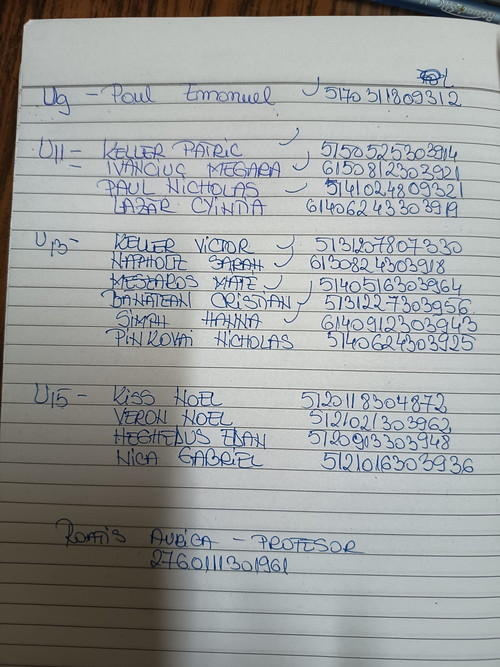 U9 - Paul Emanuel 5170311309312
U11 = KELLER PATRIC 5150525303914
IVANCIUC MEGARA 6150812303921
PAUL NICHOLAS 5141024809321
LAZAR CYINTIA 61406243303919
U13 - KELLER VICTOR 5131207807330
NAPHOLTZ SARAH 6130824303918
MESZAROS MATE 5140516303964
BANATEAN CRISTIAN 5131227303956
SIMAH HANNA 6140912303943
PINKOVAI NICHOLAS 5140624303925
U15 - KISS NOEL 5120118304872
VERON NOEL 5121021303962
HEGHEDUS EDAN 5120913303948
NICA GABRIEL 5121016303936
AURICA - PROFESOR
2760111301961